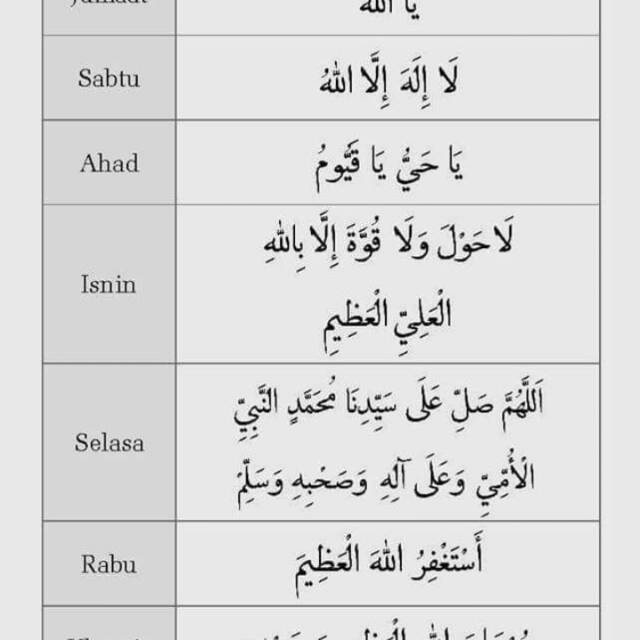 يَا اللهُ
Sabtu
لَا إِلَهَ إِلَّا اللهُ
Ahad
يَا حَيُّ يَا قَيُّومُ
Isnin
لَا حَوْلَ وَلَا قُوَّةَ إِلَّا بِاللهِ
الْعَلِيِّ الْعَظِيمِ
Selasa
اَللَّهُمَّ صَلِّ عَلَى سَيِّدِنَا مُحَمَّدٍ النَّبِيِّ
الْأُمِّيِّ وَعَلَى آلِهِ وَصَحْبِهِ وَسَلِّمْ
Rabu
أَسْتَغْفِرُ اللهَ الْعَظِيمَ